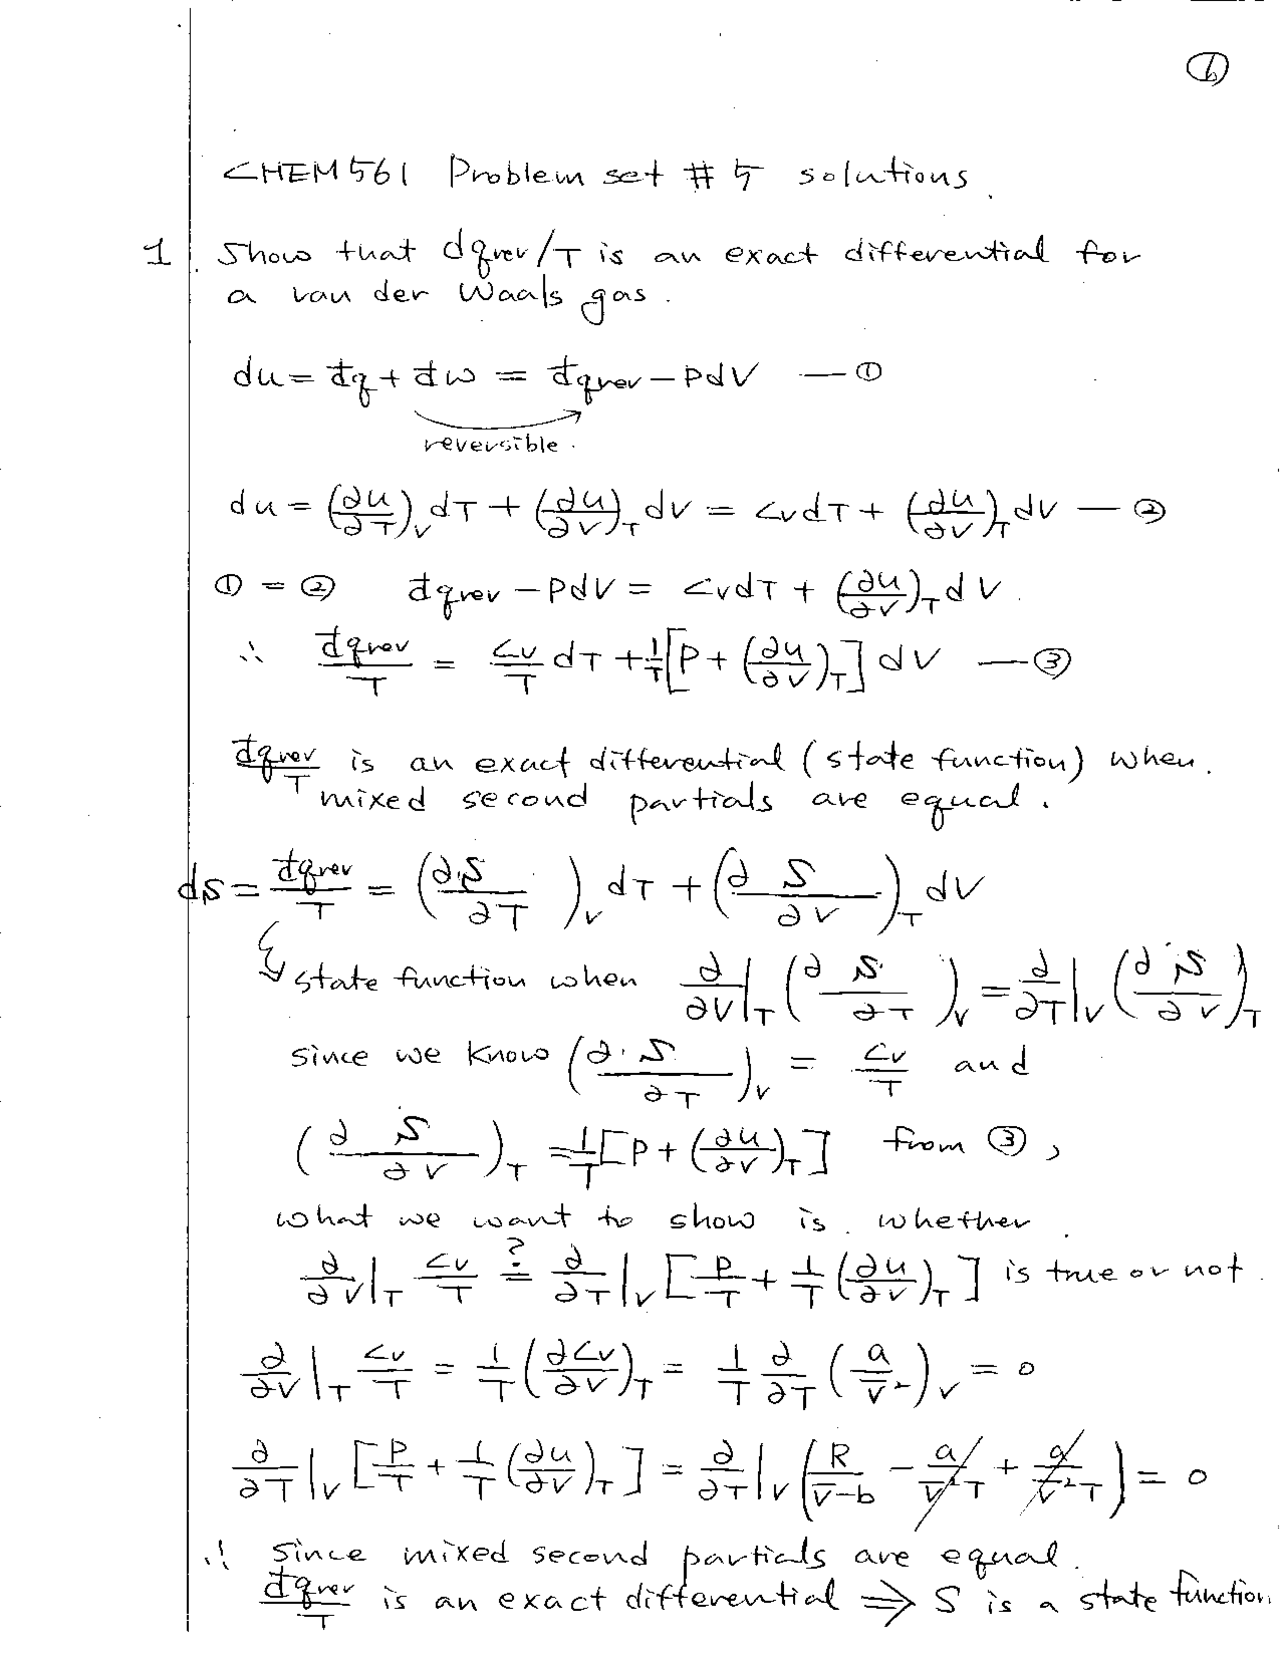 ①
CHEM561 Problem set # 5 solutions.
1. Show that đqrev/T is an exact differential for
a van der Waals gas.
du = đq + đw = đqrev − PdV — ①
reversible.
du = (∂u/∂T)_V dT + (∂u/∂V)_T dV = CvdT + (∂u/∂V)_T dV — ②
① = ② đqrev − PdV = CvdT + (∂u/∂V)_T dV.
∴ đqrev/T = Cv/T dT + 1/T [P + (∂u/∂V)_T] dV — ③
đqrev/T is an exact differential (state function) when.
mixed second partials are equal.
dS = đqrev/T = (∂S/∂T)_V dT + (∂S/∂V)_T dV
↳ state function when ∂/∂V|_T (∂S/∂T)_V = ∂/∂T|_V (∂S/∂V)_T
since we know (∂S/∂T)_V = Cv/T and
(∂S/∂V)_T = 1/T [P + (∂u/∂V)_T] from ③,
what we want to show is whether.
∂/∂V|_T Cv/T ≟ ∂/∂T|_V [P/T + 1/T (∂u/∂V)_T] is true or not.
∂/∂V|_T Cv/T = 1/T (∂Cv/∂V)_T = 1/T ∂/∂T (a/V̄²)_V = 0
∂/∂T|_V [P/T + 1/T (∂u/∂V)_T] = ∂/∂T|_V (R/(V̄−b) − a/(V̄²T) + a/(V̄²T)) = 0
∴ since mixed second partials are equal.
đqrev/T is an exact differential ⟹ S is a state function.